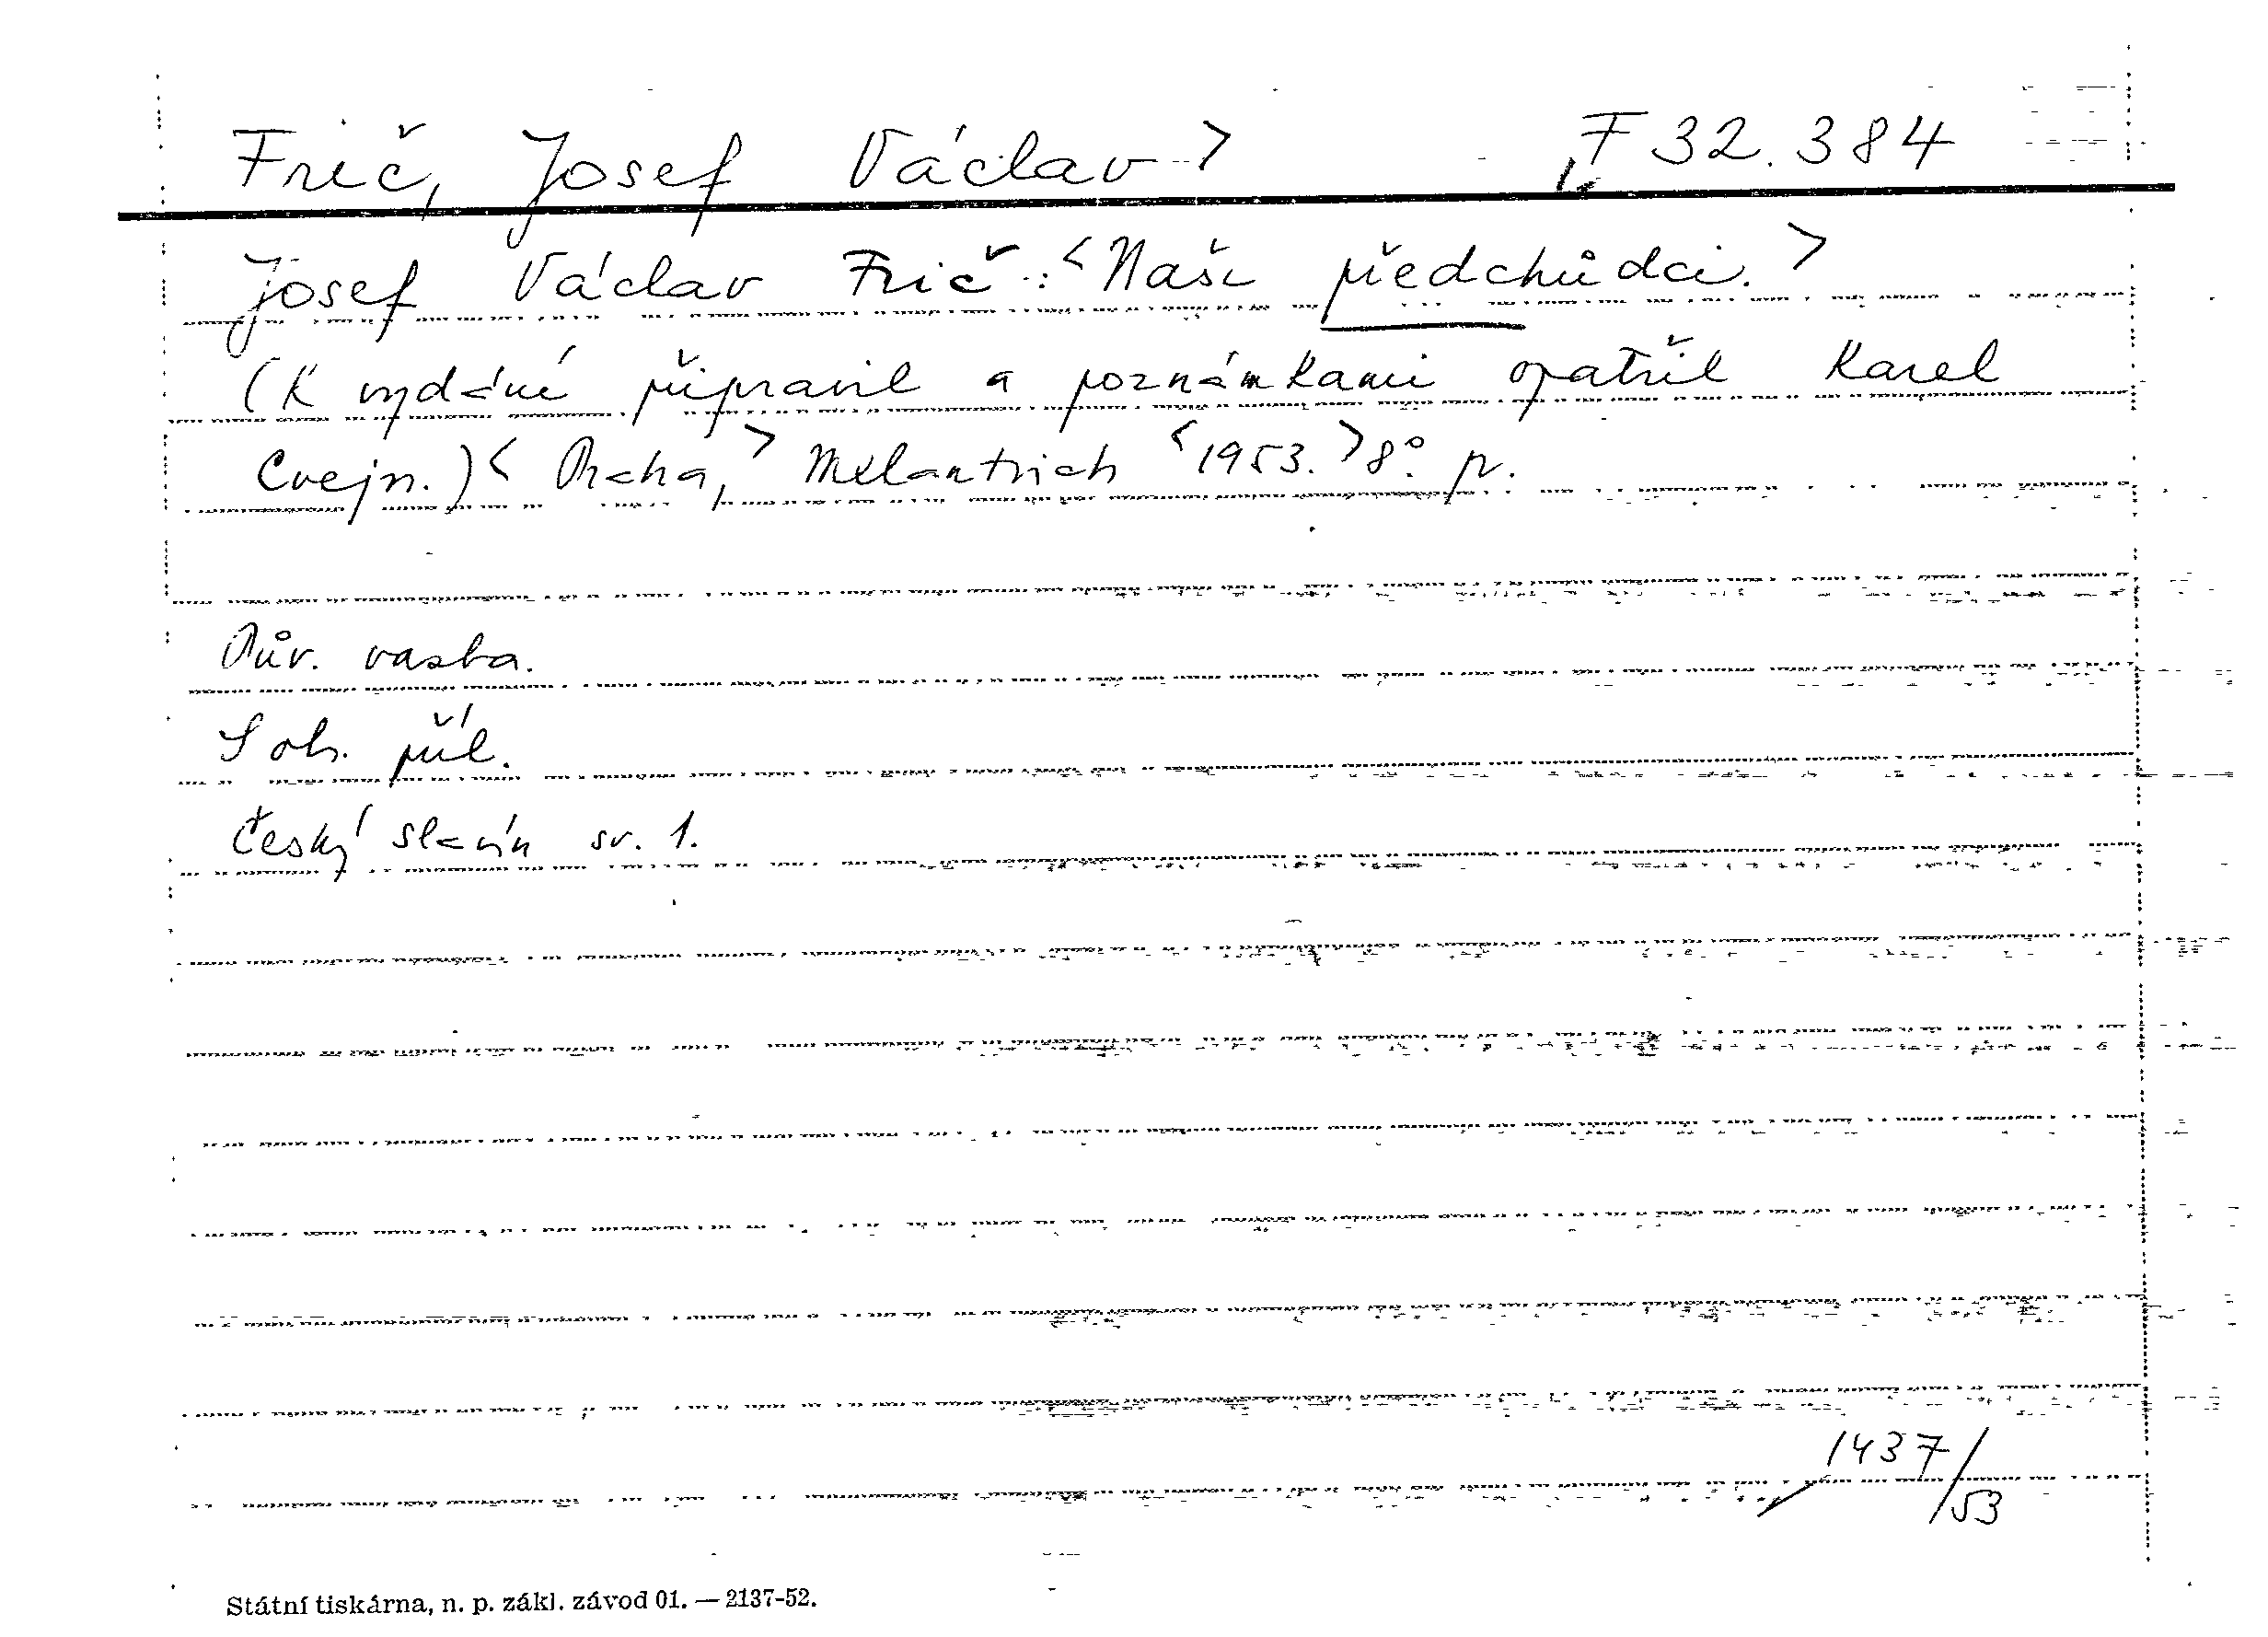 Frič, Josef Václav > F 32.384
Josef Václav Frič: <Naši předchůdci.>
(K vydání připravil a poznámkami opatřil Karel
Cvejn.) < Praha, > Melantrich <1953.> 8° p.
Pův. vazba.
S ob. příl.
Český slavín sv. 1.
1437/53
Státní tiskárna, n. p. zákl. závod 01. — 2137-52.